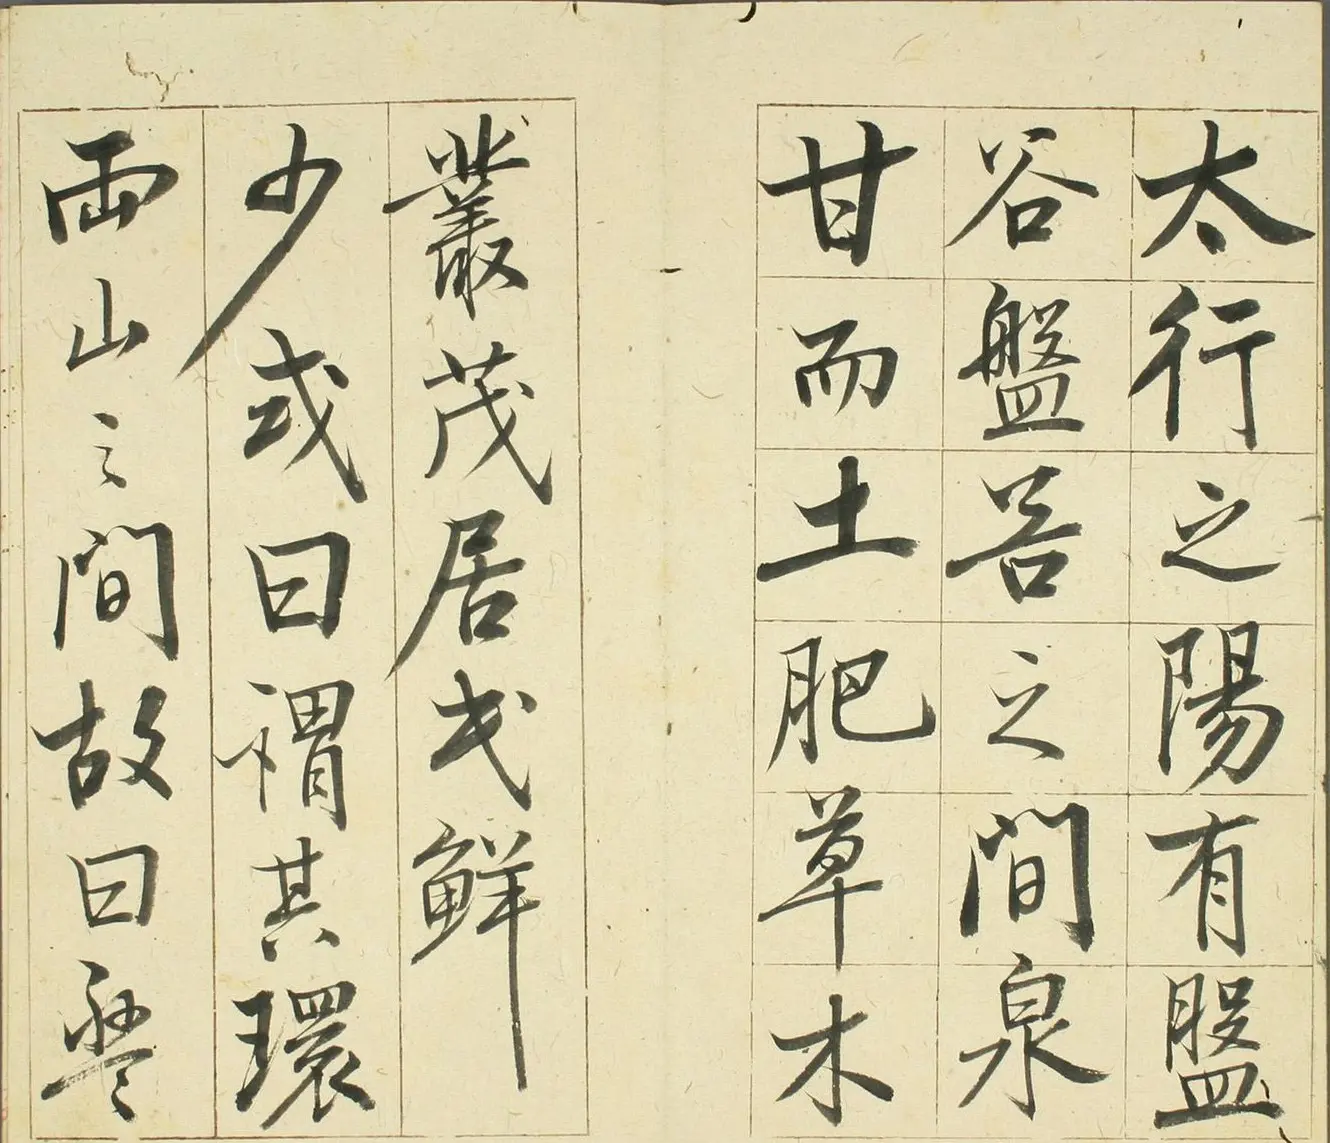 太行之陽有盤
谷盤谷之間泉
甘而土肥草木
叢茂居民鮮
少或曰謂其環
兩山之間故曰盤